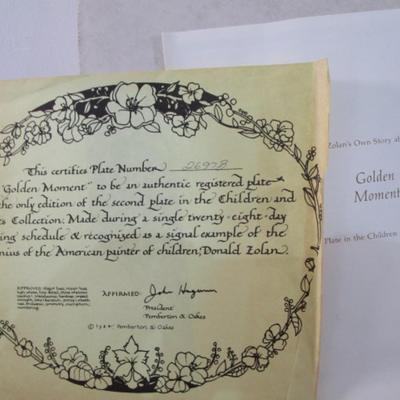 This certifies Plate Number 26978
"Golden Moment" to be an authentic registered plate
the only edition of the second plate in the Children and
ts Collection. Made during a single twenty-eight-day
ing schedule & recognized as a signal example of the
nius of the American painter of children, Donald Zolan.
AFFIRMED: John Hugunin
President
Pemberton & Oakes
Pemberton & Oakes
Zolan's Own Story
Golden
Moment
Plate in the Children